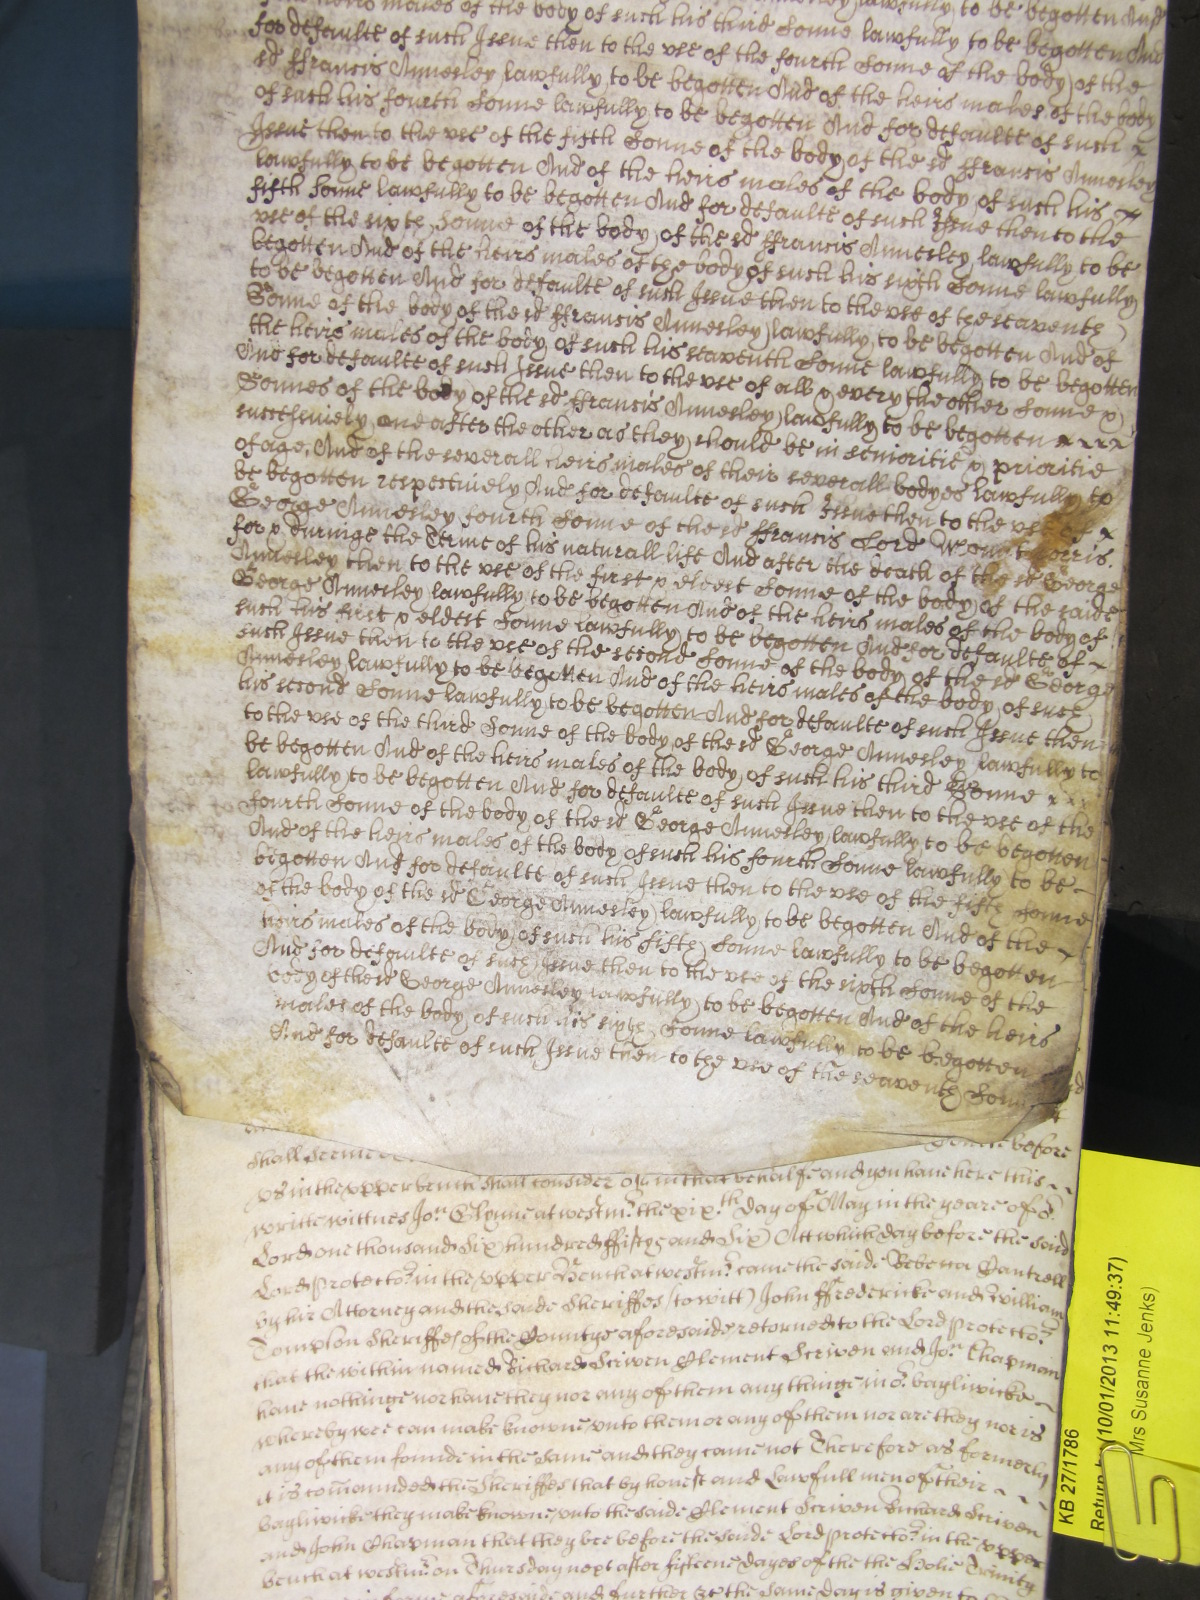 heirs males of the body of such his third Sonne lawfully to be begotten And
for defaulte of such Issue then to the vse of the fourth Sonne of the body of the
sd ffrancis Annesley lawfully to be begotten And of the heirs males of the body
of such his fourth Sonne lawfully to be begotten And for defaulte of such
Issue then to the vse of the fifth Sonne of the body of the sd ffrancis Annesley
lawfully to be begotten And of the heirs males of the body of such his
fifth Sonne lawfully to be begotten And for defaulte of such Issue then to the
vse of the sixth Sonne of the body of the sd ffrancis Annesley lawfully to be
begotten And of the heirs males of the body of such his sixth Sonne lawfully
to be begotten And for defaulte of such Issue then to the vse of the seaventh
Sonne of the body of the sd ffrancis Annesley lawfully to be begotten And of
the heirs males of the body of such his seaventh Sonne lawfully to be begotten
And for defaulte of such Issue then to the vse of all & every the other Sonne &
Sonnes of the body of the sd ffrancis Annesley lawfully to be begotten
successiuely one after the other as they should be in senioritie & prioritie
of age, And of the severall heirs males of their severall bodyes lawfully to
be begotten respectiuely And for defaulte of such Issue then to the vse of
George Annesley fourth Sonne of the sd ffrancis Lord Mountnorris
for & duringe the terme of his naturall life And after the death of the sd George
Annesley then to the vse of the first & eldest Sonne of the body of the saide
George Annesley lawfully to be begotten And of the heirs males of the body of
such his first & eldest Sonne lawfully to be begotten And for defaulte of
such Issue then to the vse of the second Sonne of the body of the sd George
Annesley lawfully to be begotten And of the heirs males of the body of such
his second Sonne lawfully to be begotten And for defaulte of such Issue then
to the vse of the third Sonne of the body of the sd George Annesley lawfully to
be begotten And of the heirs males of the body of such his third Sonne
lawfully to be begotten And for defaulte of such Issue then to the vse of the
fourth Sonne of the body of the sd George Annesley lawfully to be begotten
And of the heirs males of the body of such his fourth Sonne lawfully to be
begotten And for defaulte of such Issue then to the vse of the fifth Sonne
of the body of the sd George Annesley lawfully to be begotten And of the
heirs males of the body of such his fifth Sonne lawfully to be begotten
And for defaulte of such Issue then to the vse of the sixth Sonne of the
body of the sd George Annesley lawfully to be begotten And of the heirs
males of the body of such his sixth Sonne lawfully to be begotten
And for defaulte of such Issue then to the vse of the seaventh Sonne
before
shall seeme
vs in the vpper bench shall consider of in that behalfe and you haue here this
writt wittnes Jon Glynne at westmr the xixth day of May in the yeare of or
Lord one thousand Six hundred ffiftye and Six Att which day before the said
Lord protector in the vpper Bench at westmr came the saide Rebecca Cantrell
by hir Attorney and the saide Sheriffes (to witt) John ffredericke and William
Tompson Sheriffes of the Countye aforesaide retorned to the Lord protector
that the within named Richard Scriven Clement Scriven and Jon Chapman
haue nothinge nor haue they nor any of them any thinge in or bayliwicke
whereby wee can make knowne vnto them or any of them nor are they nor is
any of them founde in the same and they came not Therefore as formerly
it is commaunded the Sheriffes that by honest and Lawfull men of their
bayliwicke they make knowne vnto the saide Clement Scriven Richard Scriven
and John Chapman that they bee before the saide Lord protector in the vpper
bench at westmr on Thursday next after fifteene dayes of the the Holie Trinity
in forme aforesaide and further &c the same day is given to
KB 27/1786
Return by (10/01/2013 11:49:37)
Mrs Susanne Jenks)